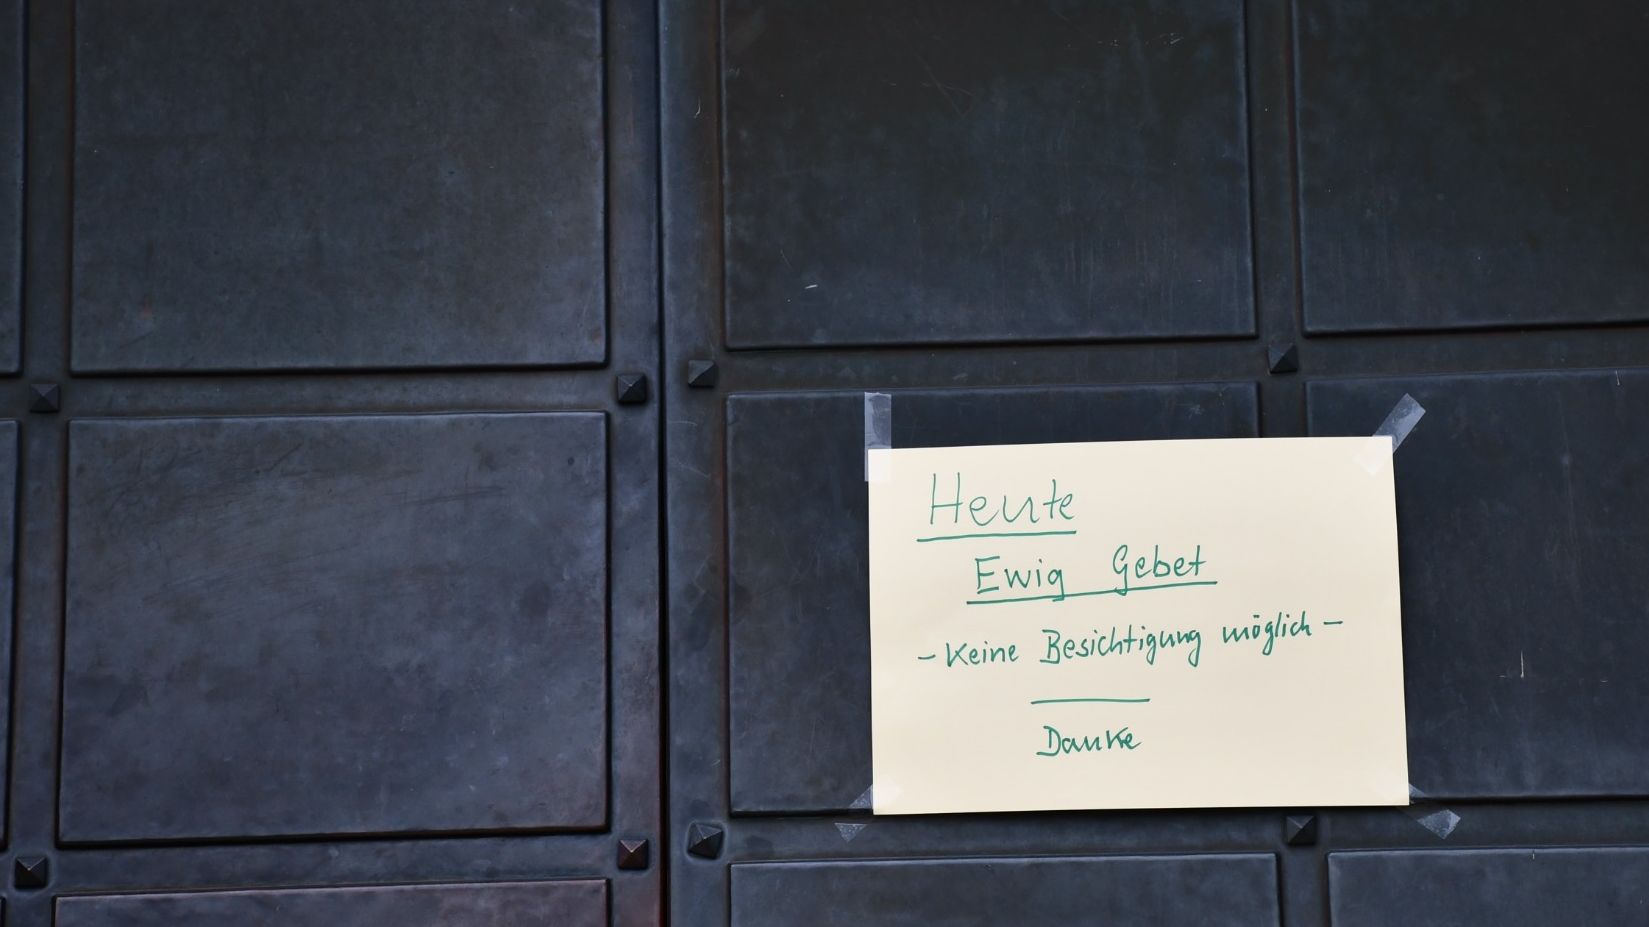 Heute
Ewig Gebet
- Keine Besichtigung möglich -
Danke